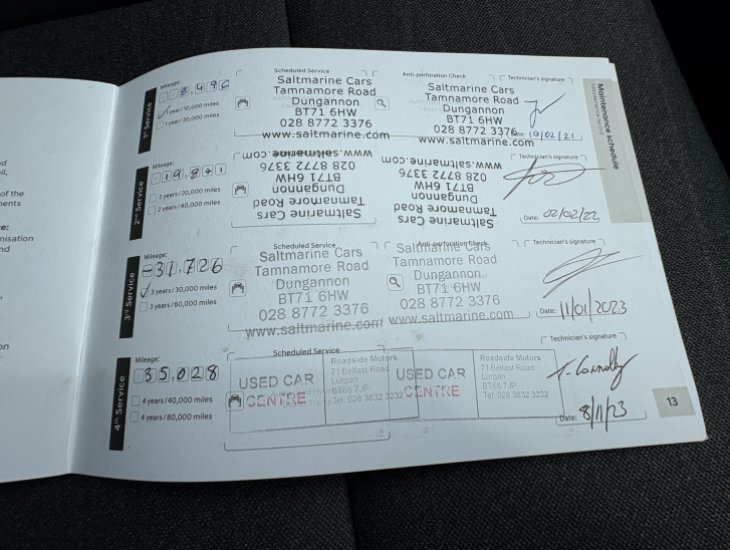 Maintenance schedule
1st Service
Mileage:
8,496
1 year/10,000 miles
1 year/20,000 miles
Scheduled Service
Saltmarine Cars
Tamnamore Road
Dungannon
BT71 6HW
028 8772 3376
www.saltmarine.com
Anti-perforation Check
Saltmarine Cars
Tamnamore Road
Dungannon
BT71 6HW
028 8772 3376
www.saltmarine.com
Technician's signature
Date: 10/02/21
2nd Service
Mileage:
19,841
2 years/20,000 miles
2 years/40,000 miles
Saltmarine Cars
Tamnamore Road
Dungannon
BT71 6HW
028 8772 3376
www.saltmarine.com
Saltmarine Cars
Tamnamore Road
Dungannon
BT71 6HW
028 8772 3376
www.saltmarine.com
Technician's signature
Date: 02/02/22
3rd Service
Mileage:
-31,726
3 years/30,000 miles
3 years/60,000 miles
Scheduled Service
Saltmarine Cars
Tamnamore Road
Dungannon
BT71 6HW
028 8772 3376
www.saltmarine.com
Anti-perforation Check
Saltmarine Cars
Tamnamore Road
Dungannon
BT71 6HW
028 8772 3376
www.saltmarine.com
Technician's signature
Date: 11/01/2023
4th Service
Mileage:
35,028
4 years/40,000 miles
4 years/80,000 miles
Scheduled Service
USED CAR
CENTRE
Roadside Motors
71 Belfast Road
Lurgan
BT66 7JP
Tel: 028 3832 3232
USED CAR
CENTRE
Roadside Motors
71 Belfast Road
Lurgan
BT66 7JP
Tel: 028 3832 3232
Technician's signature
T. Connolly
Date: 8/11/23
13